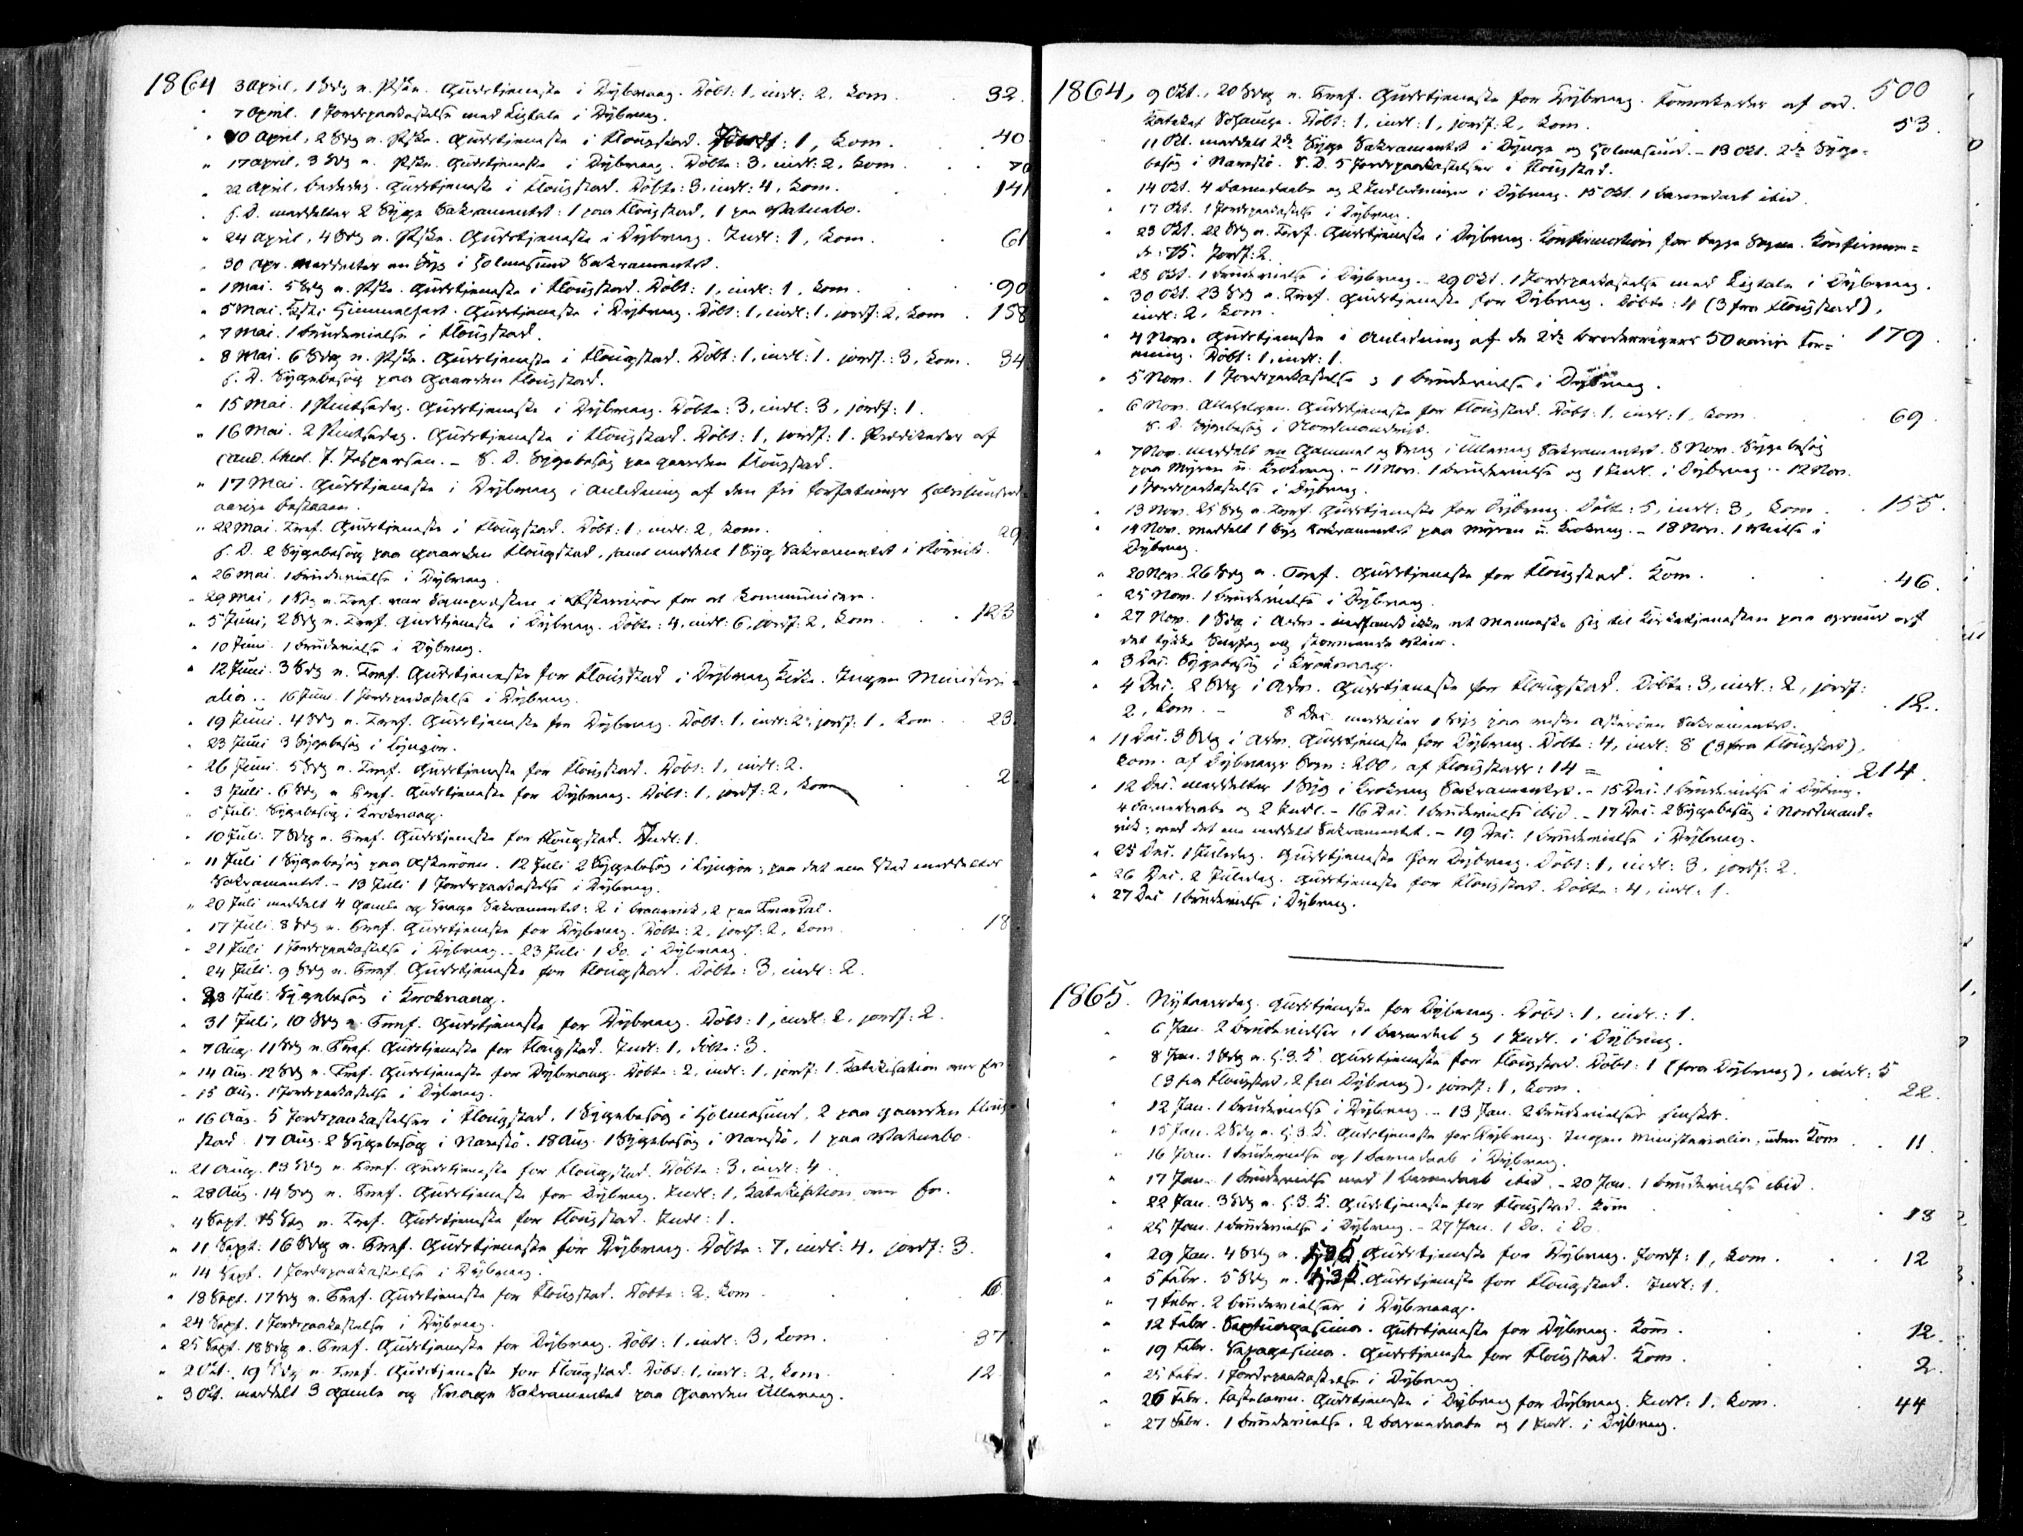 1864 3 April, 1 Sdg e. Pske. Gudstjeneste i Dybvaag. Døbt: 1, indl: 2, Kom. 32.
" 7 April. 1 Jordpaakastelse med Ligtale i Dybvaag.
" 10 April, 2 Sdg e. Pske. Gudstjeneste i Flougstad. Jordf: 1, Kom. 40
" 17 April, 3 Sdg e. Pske. Gudstjeneste i Dybvaag. Døbte: 3, indl: 2, Kom. 70
" 22 April, Bededag. Gudstjeneste i Flougstad. Døbte: 3, indl: 4, Kom. 141
S. D. meddeltes 2 Syge Sakramentet: 1 paa Flougstad, 1 paa
" 24 April, 4 Sdg e. Pske. Gudstjeneste i Dybvaag. Indl: 1, Kom. 61
" 30 Apr. meddeltes en Syg i Holmesund Sakramentet.
" 1 Mai. 5 Sdg e. Pske. Gudstjeneste i Flougstad. Døbt: 1, indl: 1, Kom. 90
" 5 Mai. Kristi Himmelfart. Gudstjeneste i Dybvaag. Døbt: 1, indl: 1, jordf: 2, Kom. 158
" 7 Mai. 1 Brudevielse i Flougstad.
" 8 Mai. 6 Sdg e. Pske. Gudstjeneste i Flougstad. Døbt: 1, indl: 1. jordf: 3, Kom. 34
S. D. Sygebesøg paa Gaarden Flougstad.
" 15 Mai. 1 Pintsedag. Gudstjeneste i Dybvaag. Døbte: 3, indl: 3, jordf: 1.
" 16 Mai. 2 Pintsedag. Gudstjeneste i Flougstad. Døbt: 1, jordf: 1. Prædikeder af
Cand. theol. J. Jespersen. – S. D. Sygebesøg paa Gaarden Flougstad.
" 17 Mai. Gudstjeneste i Dybvaag i Anledning af den fri Forfatnings halvhundred-
aarige Bestaaen.
" 22 Mai. Tref. Gudstjeneste i Flougstad. Døbt: 1, indl: 2, Kom. 29
S. D. 2 Sygebesøg paa Gaarden Flougstad, samt meddelt 1 Syg Sakramentet i
" 26 Mai. 1 Brudevielse i Dybvaag.
" 29 Mai, 1 Sdg e. Tref. var Sognepresten i Østerrisør for at kommunicere.
" 5 Juni, 2 Sdg e. Tref. Gudstjeneste i Dybvaag. Døbte: 4, indl: 6, jordf: 2, Kom. 123
" 10 Juni. 1 Brudevielse i Dybvaag.
" 12 Juni. 3 Sdg e. Tref. Gudstjeneste for Flougstad i Dybvaag Kirke. Ingen Ministeri-
alia. 16 Juni. 1 Jordpaakastelse i Dybvaag.
" 19 Juni. 4 Sdg e. Tref. Gudstjeneste for Dybvaag. Døbt: 1, indl: 2, jordf: 1. Kom. 23.
" 23 Juni 3 Sygebesøg i Lyngør.
" 26 Juni. 5 Sdg e. Tref. Gudstjeneste for Flougstad. Døbt: 1, indl: 2.
" 3 Juli. 6 Sdg e. Tref. Gudstjeneste for Dybvaag. Døbt: 1, jordf: 2, Kom 2.
" 5 Juli. Sygebesøg i Krokvaag.
" 10 Juli. 7 Sdg e. Tref. Gudstjeneste for Flougstad. Indl: 1.
" 11 Juli 1 Sygebesøg paa Askerøen. 12 Juli 2 Sygebesøg i Lyngør; paa det ene Sted meddeltes
Sakramentet. – 13 Juli 1 Jordpaakastelse i Dybvaag.
" 20 Juli meddelt 4 Gamle og Svage Sakramentet: 2 i 2 paa
" 17 Juli. 8 Sdg e. Tref. Gudstjeneste for Dybvaag. Døbte: 2, jordf: 2, Kom. 18
" 21 Juli 1 Jordpaakastelse i Dybvaag. – 23 Juli 1 Do. i Dybvaag.
" 24 Juli. 9 Sdg e. Tref. Gudstjeneste for Flougstad. Døbte: 3, indl: 2.
" 28 Juli. Sygebesøg i Krokvaag.
" 31 Juli, 10 Sdg e. Tref. Gudstjeneste for Dybvaag. Døbt: 1, indl: 2, jordf: 2.
" 7 Aug. 11 Sdg e. Tref. Gudstjeneste for Flougstad. Indl: 1, døbte: 3.
" 14 Aug. 12 Sdg e. Tref. Gudstjeneste for Dybvaag. Døbte: 2, indl: 1, jordf: 1. Katekisation over
" 15 Aug. 1 Jordpaakastelse i Dybvaag.
" 16 Aug. 5 Jordpaakastelser i Flougstad, 1 Sygebesøg i Holmesund, 2 paa Gaarden Floug-
stad. 17 Aug. 2 Sygebesøg i Narestø. 18 Aug. 1 Sygebesøg i Narestø, 1 paa
" 21 Aug. 13 Sdg e. Tref. Gudstjeneste for Flougstad. Døbte: 3, indl: 4.
" 28 Aug. 14 Sdg e. Tref. Gudstjeneste for Dybvaag. Indl: 1, Katekisation over
" 4 Sept. 15 Sdg e. Tref. Gudstjeneste for Flougstad. Indl: 1.
" 11 Sept: 16 Sdg e. Tref. Gudstjeneste for Dybvaag. Døbte: 7, indl: 4, jordf: 3.
" 14 Sept. 1 Jordpaakastelse i Dybvaag.
" 18 Sept. 17 Sdg e. Tref. Gudstjeneste for Flougstad. Døbte: 2. Kom. 6
" 24 Sept. 1 Jordpaakastelse i Dybvaag.
" 25 Sept. 18 Sdg e. Tref. Gudstjeneste for Dybvaag. Døbt: 1, indl: 3, Kom. 37
" 2 Okt. 19 Sdg e. Tref. Gudstjeneste for Flougstad. Døbt: 1, indl: 2, Kom. 12
" 3 Okt. meddelt 3 Gamle og Svage Sakramentet paa Gaarden Ullevaag.
500
1864, 9 Okt., 20 Sdg e. Tref. Gudstjeneste for Dybvaag. af ord.
Kateket Døbt: 1, indl: 1, jordf: 2, Kom. 53.
11 Okt. meddelt 2de Syge Sakramentet i og Holmesund. – 13 Okt. 2de Syge-
besøg i Narestø. S. D. 5 Jordpaakastelser i Flougstad.
" 14 Okt. 4 Barnedaabe og 2 Indledninger i Dybvaag. 15 Okt. 1 Barnedaab ibid.
" 17 Okt. 1 Jordpaakastelse i Dybvaag.
" 23 Okt. 22 Sdg e. Tref. Gudstjeneste i Dybvaag. Konfirmation for begge Sogne. Konfirmere-
de: 75. Jordf: 2.
" 28 Okt. 1 Brudevielse i Dybvaag. – 29 Okt. 1 Jordpaakastelse med Ligtale i Dybvaag.
" 30 Okt. 23 Sdg e. Tref. Gudstjeneste for Dybvaag. Døbte: 4 (3 fra Flougstad),
indl: 2, Kom.
" 4 Nov. Gudstjeneste i Anledning af de 2de Broderrigers 50 aarige For- 179.
ening. Døbt: 1, indl: 1.
" 5 Nov. 1 Jordpaakastelse og 1 Brudevielse i Dybvaag.
" 6 Nov. Allehelgen. Gudstjeneste for Flougstad. Døbt: 1, indl: 1, Kom. 69.
S. D. Sygebesøg i
" 7 Nov. meddelt en Gammel og Svag i Ullevaag Sakramentet. 8 Nov. Sygebesøg
paa Myren u. Krokvaag. – 11 Nov. 1 Brudevielse og 1 Indl. i Dybvaag. – 12 Nov.
1 Jordpaakastelse i Dybvaag.
" 13 Nov. 25 Sdg e. Tref. Gudstjeneste for Dybvaag. Døbte: 5, indl: 3, Kom. 155.
" 14 Nov. meddelt 1 Syg Sakramentet paa Myren u. Krokvaag. – 18 Nov. 1 Vielse i
Dybvaag.
" 20 Nov. 26 Sdg e. Tref. Gudstjeneste for Flougstad. Kom. 46.
" 25 Nov. 1 Brudevielse i Dybvaag.
" 27 Nov. 1 Sdg i Adv. indfandt ikke et Menneske sig til Kirketjenesten paa Grund af
det tykke og stormende
" 3 Dec. Sygebesøg i Krokvaag.
" 4 Dec. 2 Sdg i Adv. Gudstjeneste for Flougstad. Døbte: 3, indl: 2, jordf:
2, Kom. – 8 Dec. meddeles 1 Syg paa Askerøen Sakramentet. 12.
" 11 Dec. 3 Sdg i Adv. Gudstjeneste for Dybvaag. Døbte: 4, indl: 8 (3 fra Flougstad),
Kom. af Dybvaags Sogn: 200, af Flougstads: 14 = 214.
" 12 Dec. meddeltes 1 Syg i Krokvaag Sakramentet. – 15 Dec. 1 Brudevielse i Dybvaag.
4 Barnedaabe og 2 Indl. – 16 Dec. 1 Brudevielse ibid. – 17 Dec. 2 Sygebesøg i
vik; ved det ene meddelt Sakramentet. – 19 Dec. 1 Brudevielse i Dybvaag.
" 25 Dec. 1 Juledag. Gudstjeneste for Dybvaag. Døbt: 1, indl: 3, jordf: 2.
" 26 Dec. 2 Juledag. Gudstjeneste for Flougstad. Døbte: 4, indl: 1.
" 27 Dec 1 Brudevielse i Dybvaag.
1865. Nytaarsdag. Gudstjeneste for Dybvaag. Døbt: 1, indl.: 1.
" 6 Jan. 2 Brudevielser, 1 Barnedaab og 1 Indl. i Dybvaag.
" 8 Jan. 1 Sdg e. H. 3. K. Gudstjeneste for Flougstad. Døbt: 1 (fra Dybvaag), indl: 5
(3 fra Flougstad, 2 fra Dybvaag), jordf: 1, Kom. 22.
" 12 Jan. 1 Brudevielse i Dybvaag. – 13 Jan. 2 Brudevielser
" 15 Jan. 2 Sdg e. H. 3. K. Gudstjeneste for Dybvaag. Ingen Ministerialia, uden Kom. 11.
" 16 Jan. 1 Brudevielse og 1 Barnedaab i Dybvaag.
" 17 Jan. 1 Brudevielse med 1 Barnedaab ibid. – 20 Jan. 1 Brudevielse ibid.
" 22 Jan. 3 Sdg e. H. 3. K. Gudstjeneste for Flougstad. Kom 18
" 25 Jan. 1 Brudevielse i Dybvaag. – 27 Jan. 1 Do. i Do.
" 29 Jan. 4 Sdg e. H. 3. K. Gudstjeneste for Dybvaag. Jordf: 1, Kom. 12
" 5 Febr. 5 Sdg e. H. 3. K. Gudstjeneste for Flougstad. Indl: 1.
" 7 Febr. 2 Brudevielser i Dybvaag.
" 12 Febr. Septuagesima. Gudstjeneste for Dybvaag. Kom. 12.
" 19 Febr. Sexagesima. Gudstjeneste for Flougstad. Kom. 2.
" 25 Febr. 1 Jordpaakastelse i Dybvaag.
" 26 Febr. Fastelavn. Gudstjeneste i Dybvaag for Dybvaag. Indl: 1, Kom. 44
" 27 Febr. 1 Brudevielse, 2 Barnedaabe og 1 Indl. i Dybvaag.